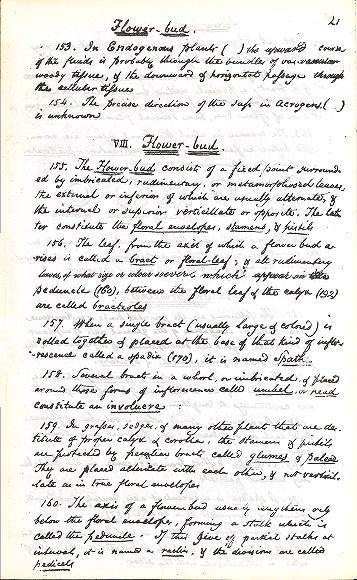 21
Flower-bud.
153. In Endogenous plants ( ) the upward course
of the fluids is probably through the bundles of vas-vascular
woody tissue, & the downward & horizontal passage through
the cellular tissue
154. The precise direction of the sap in Acrogens ( )
is unknown
VIII. Flower-bud.
155. The Flower-bud consist of a fixed point surround
ed by imbricated, rudimentary, or metamorphosed leaves,
the external or inferior of which are usually alternate, &
the internal or superior verticillate or opposite. The lat
ter constitute the floral envelopes, stamens, & pistils
156. The leaf, from the axis of which a flower bud a-
rises is called a bract or floral-leaf; & all rudimentary
leaves, of what size or colour soever, which appear on the
peduncle (160), between the floral leaf & the calyx (192)
are called bracteoles
157. When a single bract (usually large & colored) is
rolled together & placed at the base of that kind of inflo-
rescence called a spadix (170), it is named Spath.
158. Several bract in a whorl, or imbricated, & placed
around those forms of inflorescence called umbel, or head
constitute an involucre
159. In grapes, sedges, & many other plant that are de-
stitute of proper calyx & corolla, the stamens & pistils
are protected by peculiar bracts called glumes & paleæ
They are placed alternate with each other, & not verticil-
late as in true floral envelopes
160. The axis of a flower bud usually lengthens only
below the floral envelope, forming a stalk which is
called the peduncle. If this give off partial stalks at
interval, it is named a rachis, & the divisions are called
pedicels